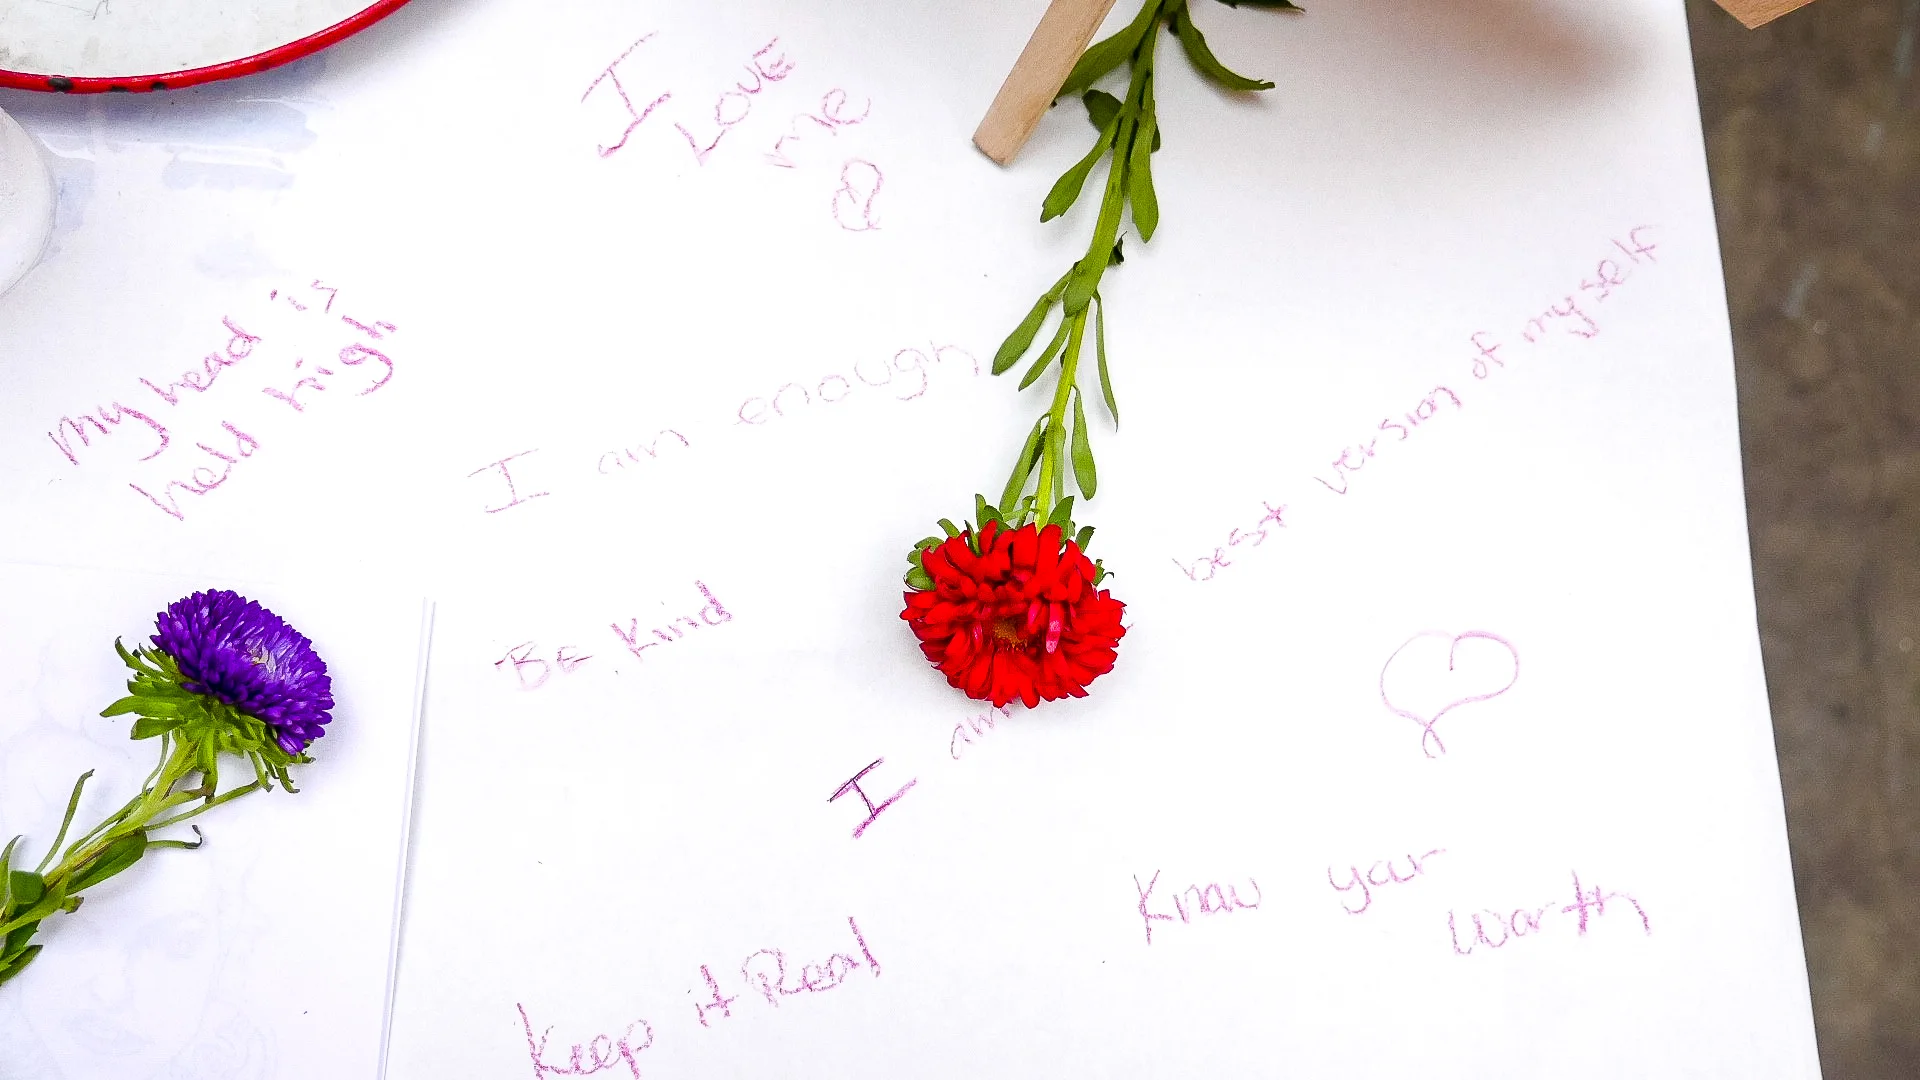 I
Love
me
My head is
held high
I am enough
Be Kind
I am best version of myself
Know your
worth
Keep it Real